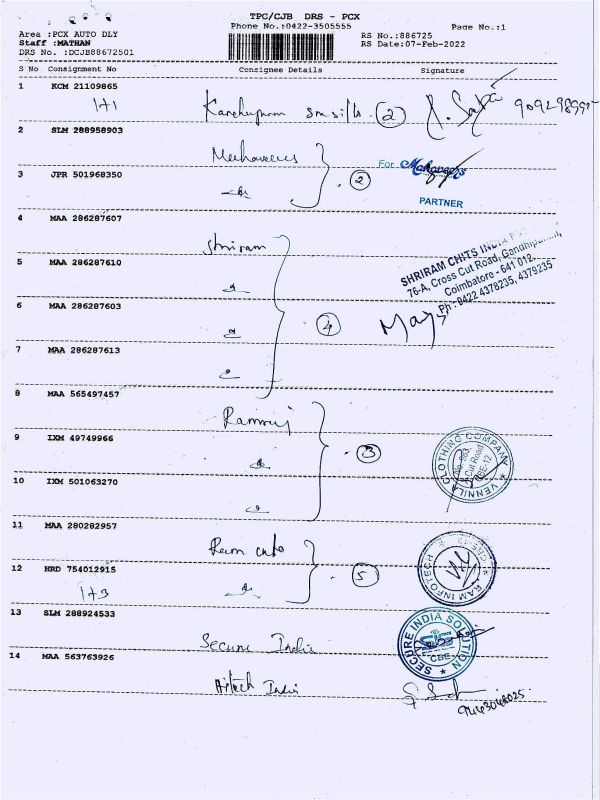 TPC/CJB DRS - PCX
Phone No.:0422-3505555
Page No.:1
Area :PCX AUTO DLY
Staff :MATHAN
DRS No. :DCJB88672501
RS No.:886725
RS Date:07-Feb-2022
S No Consignment No Consignee Details Signature
1 KCM 21109865
1+1 (2)
2 SLM 288958903
3 JPR 501968350
(2)
For Mahaveers
PARTNER
4 MAA 286287607
Shriram
SHRIRAM CHITS INDIA
76-A, Cross Cut Road, Gandhipuram,
Coimbatore - 641 012.
Ph: 0422 4376235, 4379235
5 MAA 286287610
6 MAA 286287603
(4)
7 MAA 286287613
8 MAA 565497457
Ramraj
9 IXM 49749966
(3)
VENNILA CLOTHING COMPANY
Cut Road
CBE-12
10 IXM 501063270
11 MAA 280282957
Ram
12 HRD 754012915
1+3
(5)
RAM INFOTECH
13 SLM 288924533
Secure India
SECURE INDIA SOLUTION
CBE
14 MAA 563763926
India